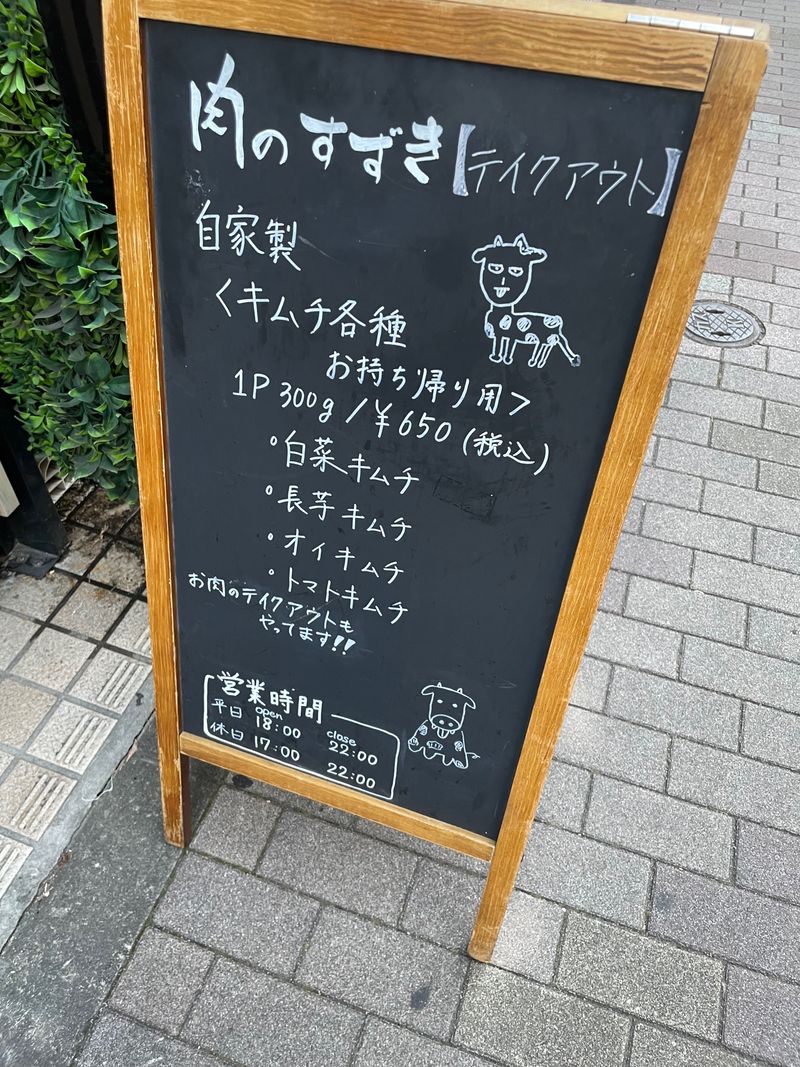 肉のすずき【テイクアウト】
自家製
<キムチ各種
お持ち帰り用>
1P 300g/¥650(税込)
・白菜キムチ
・長芋キムチ
・オイキムチ
・トマトキムチ
お肉のテイクアウトも
やってます!!
営業時間
open close
平日 18:00 22:00
休日 17:00 22:00